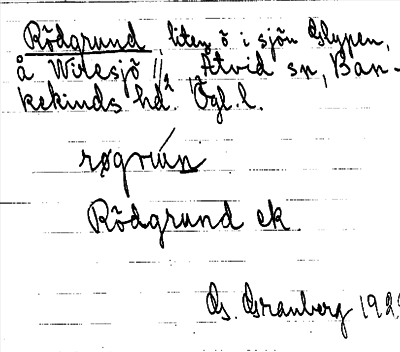 Rödgrund, liten ö i sjön Glypen,
å Wiresjö //, Åtvid sn, Ban-
kekinds hd. Ögl. l.
røgrún
Rödgrund ek.
G. Granberg